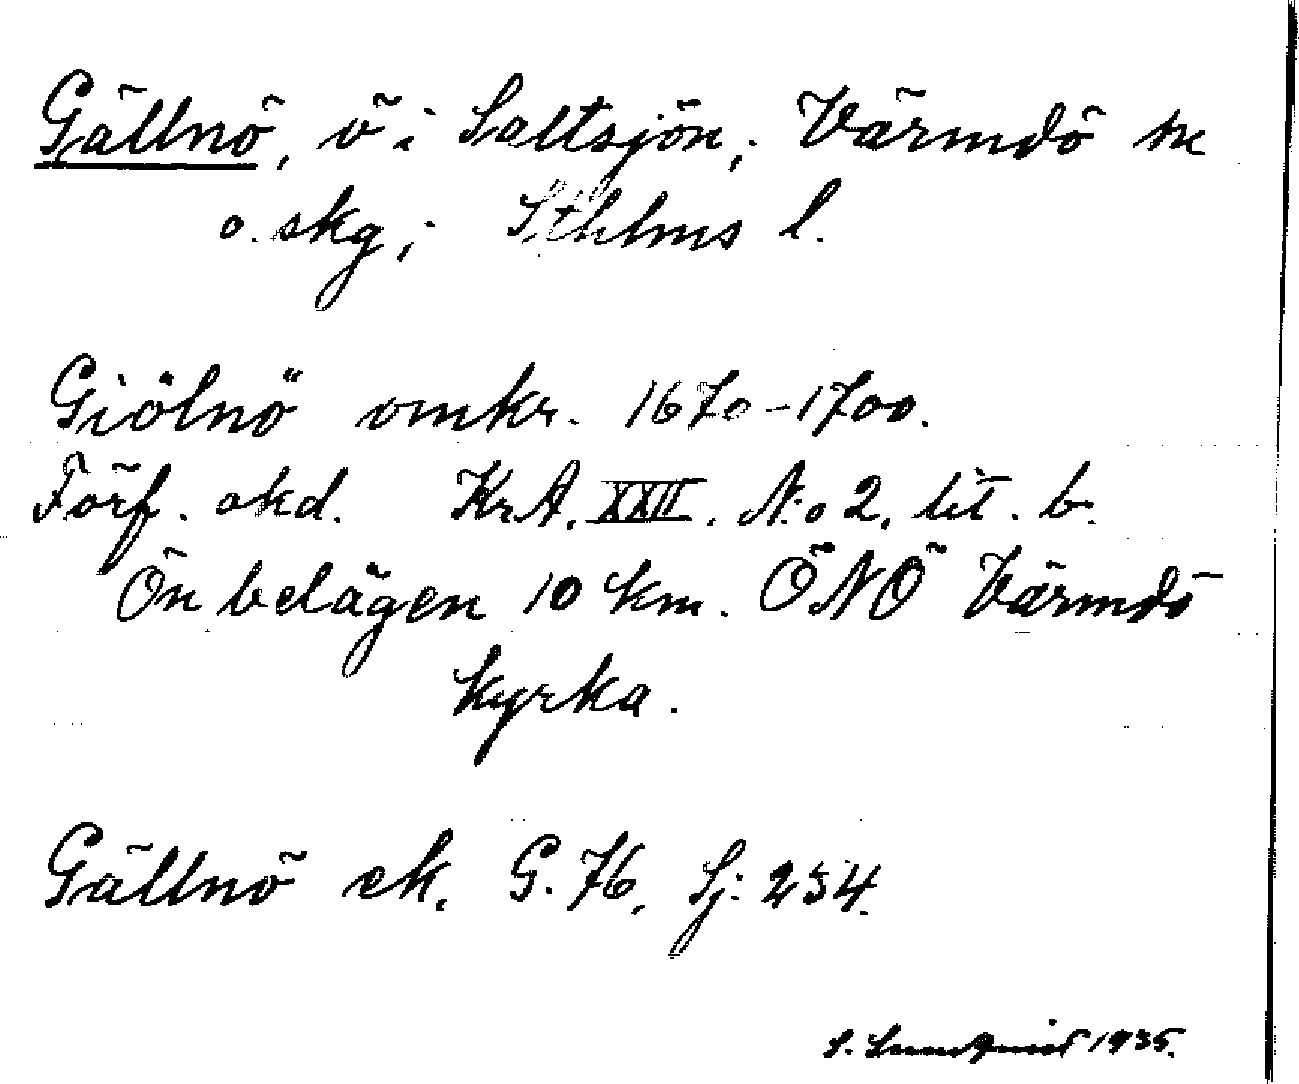 Gällnö, ö i Saltsjön, Värmdö sn
o. skg, Sthlms l.
Giölnö omkr. 1670-1700.
Förf. okd. KrA. XXII. N:o 2, lit. b.
Ön belägen 10 km. ÖNÖ Värmdö
kyrka.
Gällnö ek. G. 76, Sj: 234.
S. 1935.